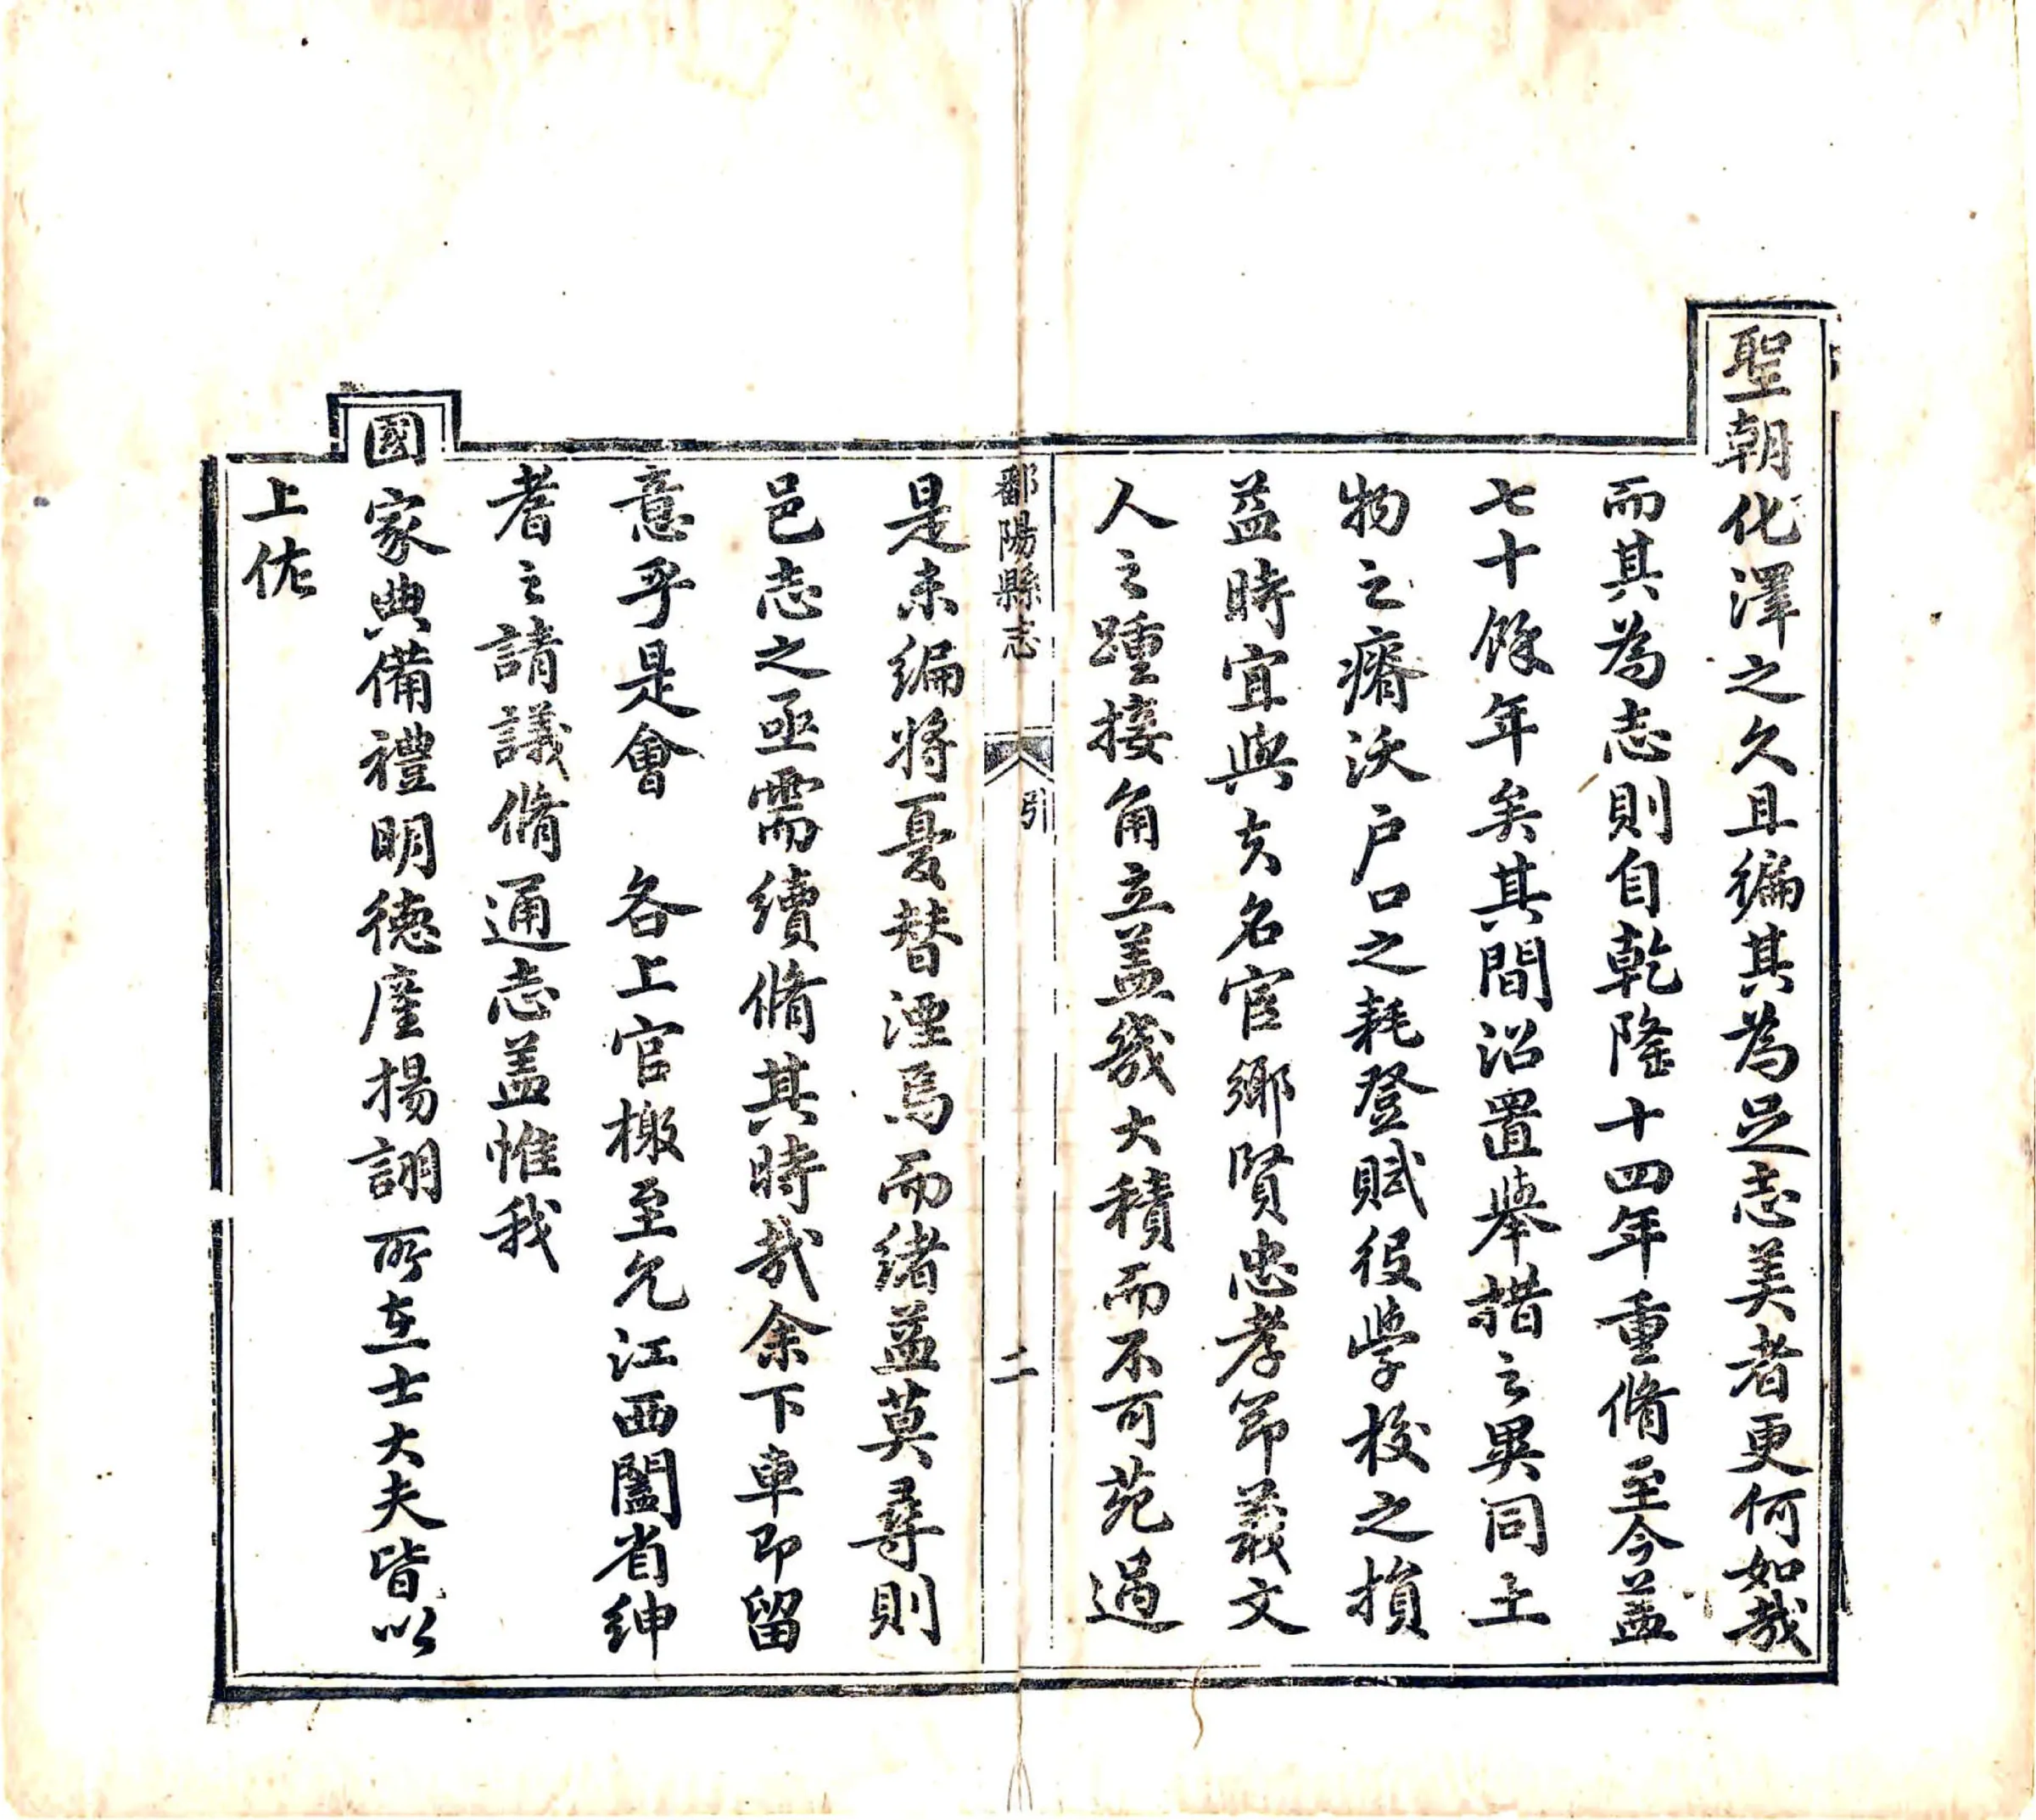 聖朝化澤之久且編其為足志美者更何如哉
而其為志則自乾隆十四年重脩至今蓋
七十餘年矣其間沿置舉措之異同土
物之瘠沃戶口之耗登賦役學校之損
益時宜與夫名宦鄉賢忠孝節義文
人之踵接角立蓋幾大積而不可苑過
是未編將憂替湮焉而緒益莫尋則
邑志之亟需續脩其時哉余下車即留
意乎是會 各上官檄至允江西闔省紳
耆之請議脩通志蓋惟我
國家典備禮明德產揚詡所在士大夫皆以
上佐
鄱陽縣志 引 二